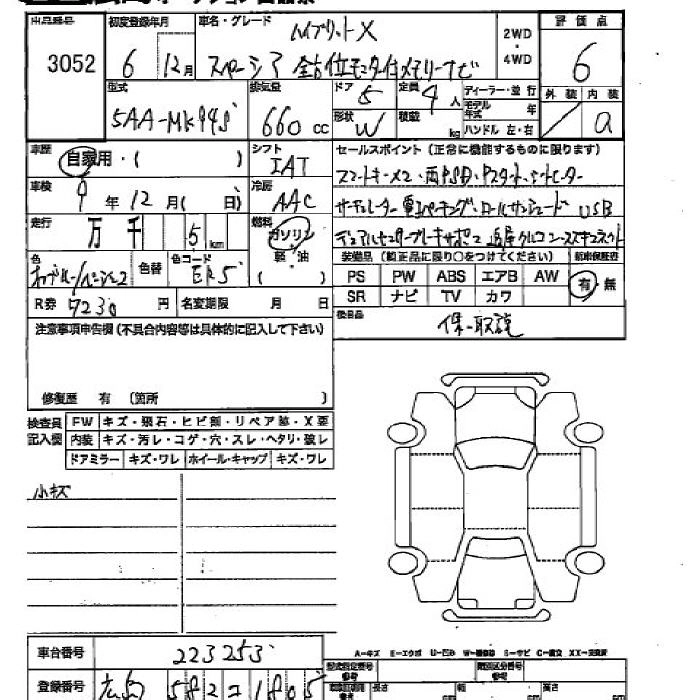 出品番号 3052
初度登録年月 6 12月
車名・グレード ハイブリットX
スペーシア 全方位モニター付メモリーナビ
2WD・4WD
評価点 6
外装 内装 a
型式 5AA-MK94S
排気量 660cc
ドア 5
形状 W
定員 4人
積載 kg
ディーラー・並行
モデル年式 年
ハンドル 左・右
車歴 自家用・( )
シフト IAT
車検 9年12月( 日)
冷房 AAC
走行 万千 5km
燃料 ガソリン 軽・油 ( )
色
色替
色コード
R券 7230円
名変期限 月 日
セールスポイント (正常に機能するものに限ります)
スマートキー×2・両PSD・Pスタート・シートヒーター
サーキュレーター 電動パーキング・ロールサンシェード USB
デュアルセンサーブレーキサポート2 追従クルコン・スズキコネクト
装備品 (純正品に限り○をつけてください)
新車保証書 有・無
PS PW ABS エアB AW
SR ナビ TV カワ
後日品 保・取説
注意事項申告欄(不具合内容等は具体的に記入して下さい)
修復歴 有 (箇所 )
検査員記入欄
FW キズ・飛石・ヒビ割・リペア跡・X要
内装 キズ・汚レ・コゲ・穴・スレ・ヘタリ・破レ
ドアミラー キズ・ワレ ホイール・キャップ キズ・ワレ
小キズ
車台番号 223253
登録番号 広島 582 = 1805